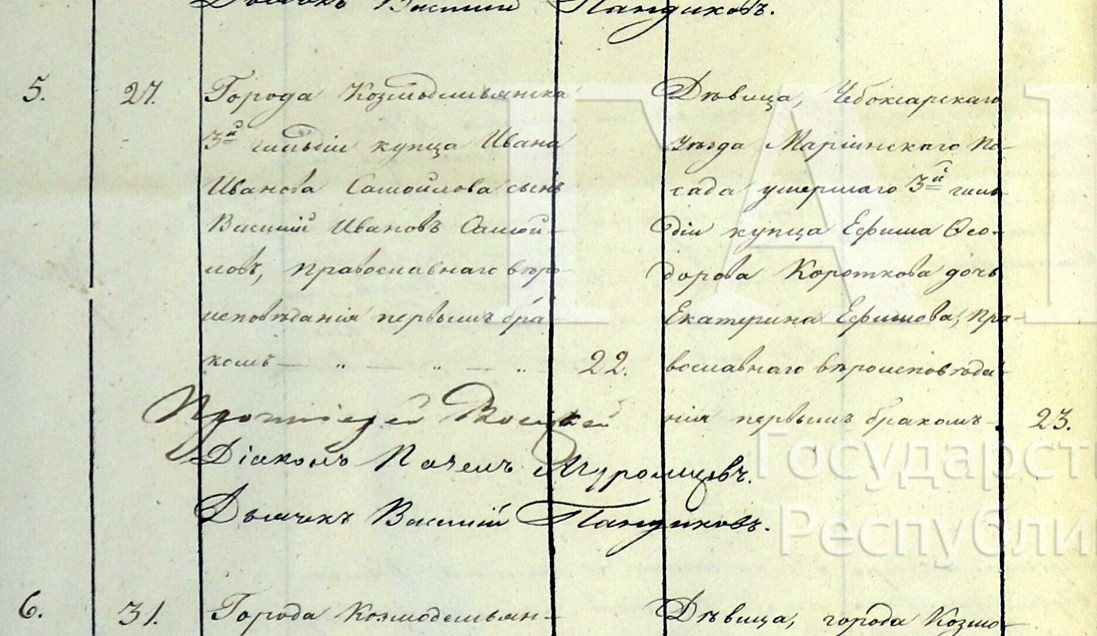 Дьячекъ Василій Пандиковъ.
5. 27. Города Козмодемьянска
3й гильдіи купца Ивана
Иванова Самойлова сынъ
Василій Ивановъ Самой-
ловъ, православнаго вѣро-
исповѣданія первымъ бра-
комъ — „ — „ — „ 22.
Дѣвица, Чебоксарскаго
уѣзда Маріинскаго По-
сада умершаго 3й гиль-
діи купца Ефима Ѳео-
дорова Короткова дочь
Екатерина Ефимова, Пра-
вославнаго вѣроисповѣда-
нія первымъ бракомъ — 23.
Протоіерей
Діаконъ Павелъ Муромцевъ.
Дьячекъ Василій Пандиковъ.
6. 31. Города Козмодемьян-
Дѣвица, города Козмо-
Государст
Республи